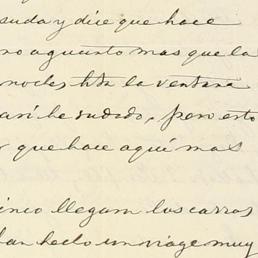 suda y dice que hace
no aguanto mas que la
noches hta la ventana
asi he sudado, pero esto
que hace aqui mas
inco llegan los carros
han hecho un viage muy